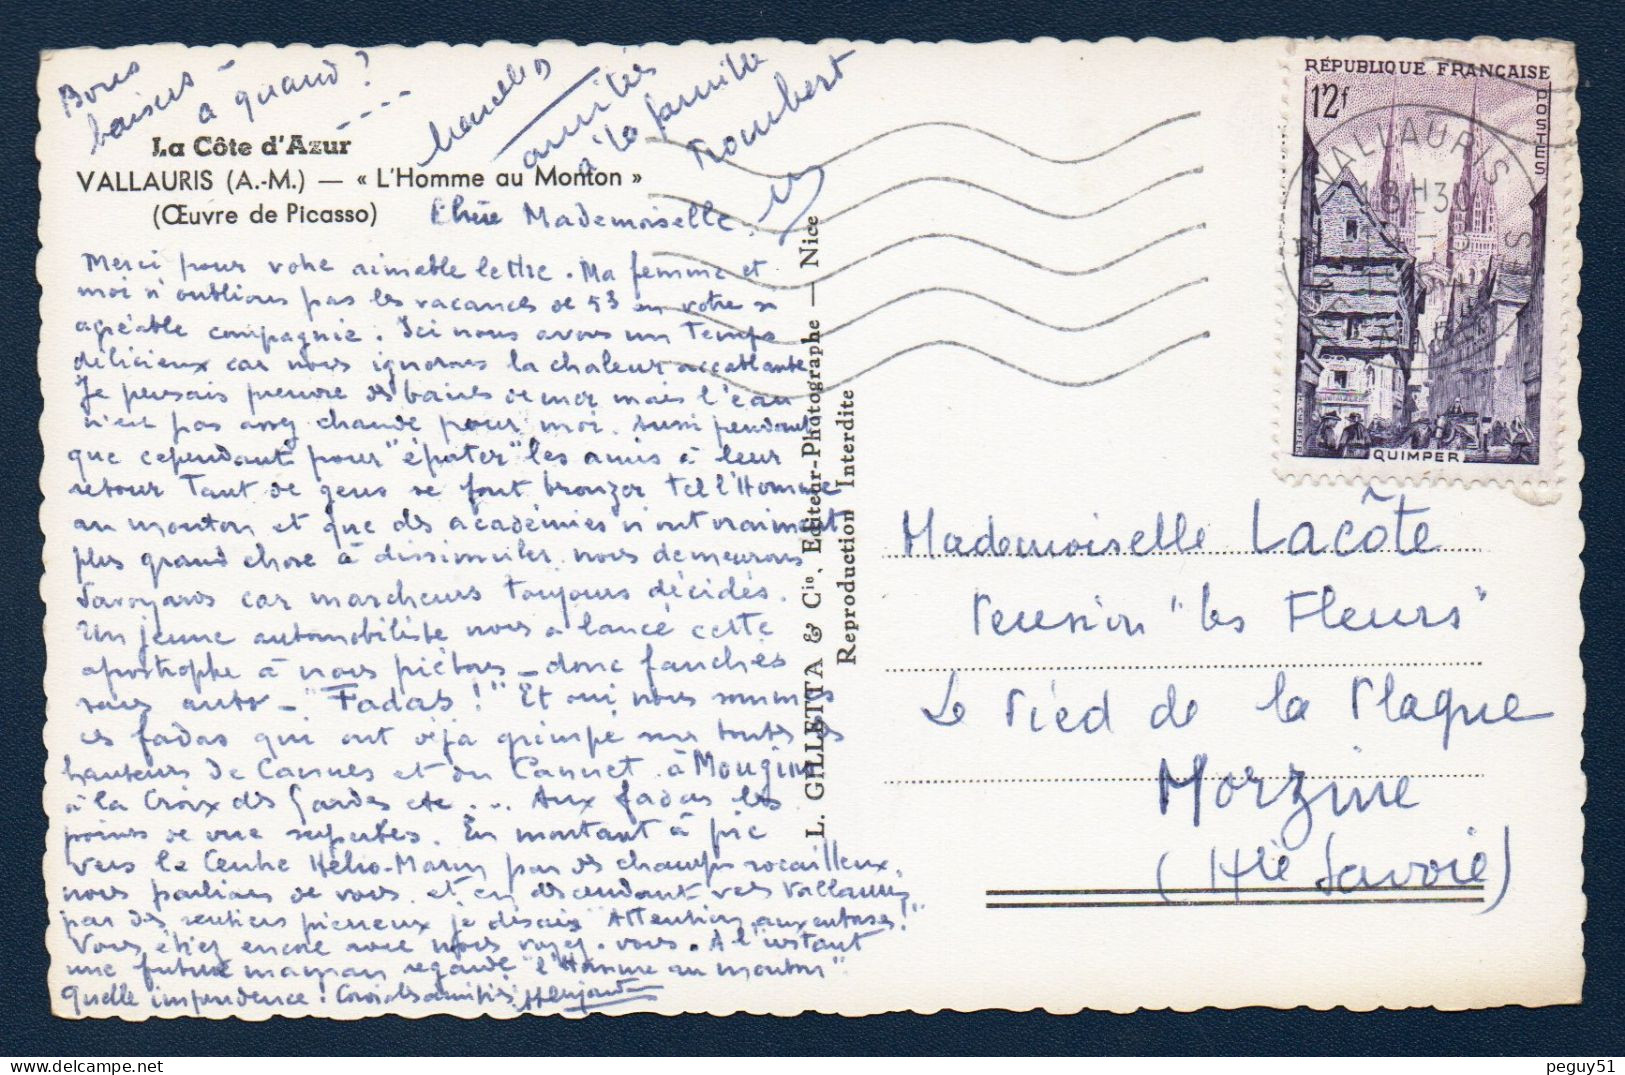 Bons
baisers
à quand ?
amitiés
à la famille
Trombert
La Côte d'Azur
VALLAURIS (A.-M.) — « L'Homme au Monton »
(Œuvre de Picasso)
Chère Mademoiselle,
Merci pour votre aimable lettre. Ma femme et
moi n'oublions pas les vacances de 53 en votre si
agréable compagnie. Ici nous avons un temps
délicieux car nous ignorons la chaleur accablante
Je pensais prendre des bains de mer mais l'eau
n'est pas assez chaude pour moi. Aussi pendant
que cependant pour "épater" les amis à leur
retour tant de gens se font bronzer tel l'Homme
au mouton et que des académies n'ont vraiment
plus grand chose à dissimuler nous demeurons
Savoyards car marcheurs toujours décidés.
Un jeune automobiliste nous a lancé cette
apostrophe à nous piétons – donc fauchés
sans auto – "Fadas !" Et oui nous sommes
ces fadas qui ont déjà grimpé sur toutes les
hauteurs de Cannes et du Cannet, à Mougins
à la Croix des Gardes etc... Aux fadas les
points de vue superbes. En montant à pic
vers le Centre Hélio-Marin par des champs rocailleux,
nous parlions de vous et en descendant vers Vallauris
par des sentiers pierreux je disais "Attention aux entorses !"
Vous étiez encore avec nous voyez-vous. A l'instant
une future maman regarde "l'Homme au mouton"
Quelle imprudence ! Cordiales amitiés
L. GILLETTA & Cie, Editeur-Photographe — Nice
Reproduction Interdite
RÉPUBLIQUE FRANÇAISE
12f
POSTES
QUIMPER
VALLAURIS
18H30
Mademoiselle Lacôte
Pension "les Fleurs"
Le Pied de la Plagne
Morzine
(Hte Savoie)
peguy51